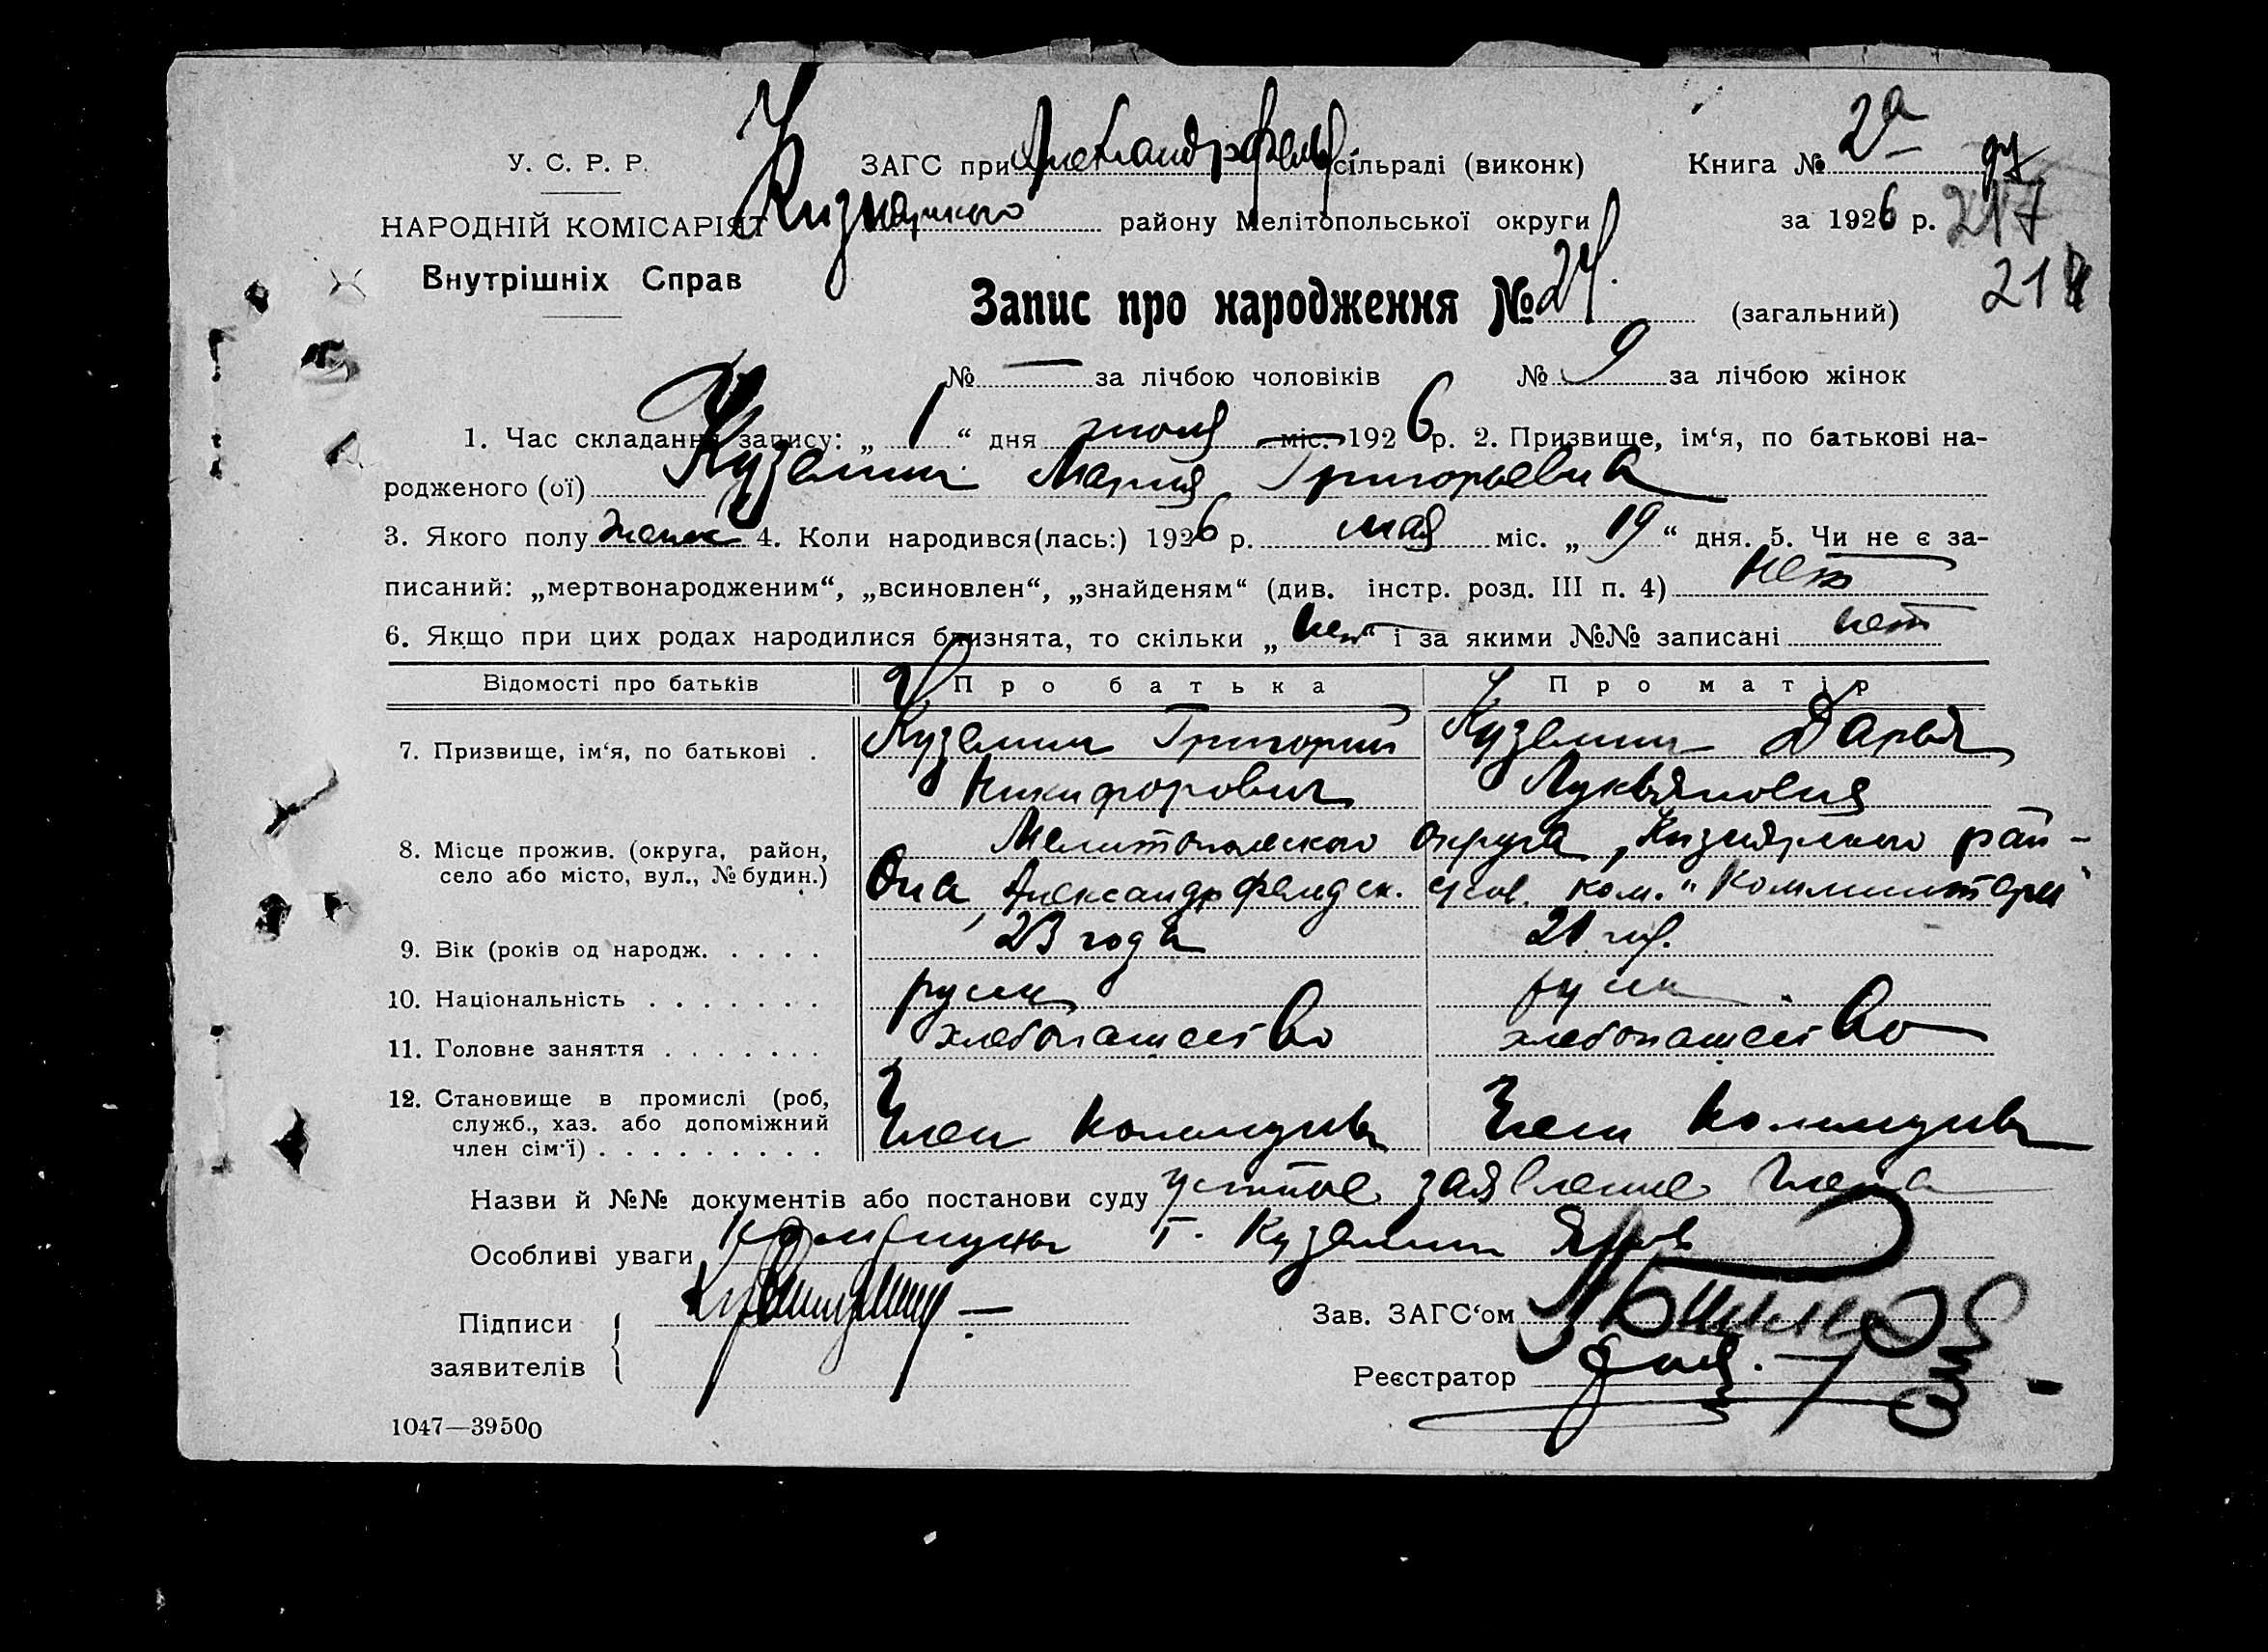 У. С. Р. Р.
НАРОДНІЙ КОМІСАРІЯТ
Внутрішніх Справ
ЗАГС при Александрфельд сільраді (виконк)
Кизиярского району Мелітопольської округи
Книга № 2а
за 1926 р.
217
218
Запис про народження № 24. (загальний)
№ — за лічбою чоловіків № 9 за лічбою жінок
1. Час складання запису: „ 1 “ дня июля міс. 1926 р. 2. Призвище, ім‘я, по батькові на-
родженого (ої) Куземин Мария Григорьевна
3. Якого полу женск 4. Коли народився(лась:) 1926 р. мая міс. „ 19 “ дня. 5. Чи не є за-
писаний: „мертвонародженим“, „всиновлен“, „знайденям“ (див. інстр. розд. III п. 4) нет
6. Якщо при цих родах народилися близнята, то скільки „ нет “ і за якими №№ записані нет
Відомості про батьків Про батька Про матір
7. Призвище, ім‘я, по батькові . Куземин Григорий Куземин Дарья
Никифорович Лукьяновна
8. Місце прожив. (округа, район, Мелитопольского округа, Кизиярского рай-
село або місто, вул., № будин.) она, Александрфельдск. ком. "Коминтерн"
9. Вік (років од народж. . . . . 23 года 21 год.
10. Національність . . . . . . . русск русск
11. Головне заняття . . . . . . . хлебопашество хлебопашество
12. Становище в промислі (роб, служб., хаз. або допоміжний член сім‘ї) . . . . . . . . . Член коммуны Член коммуны
Назви й №№ документів або постанови суду устное заявление члена
Особливі уваги коммуны т. Куземин
Підписи
заявителів
Зав. ЗАГС‘ом
Реєстратор
1047—39500